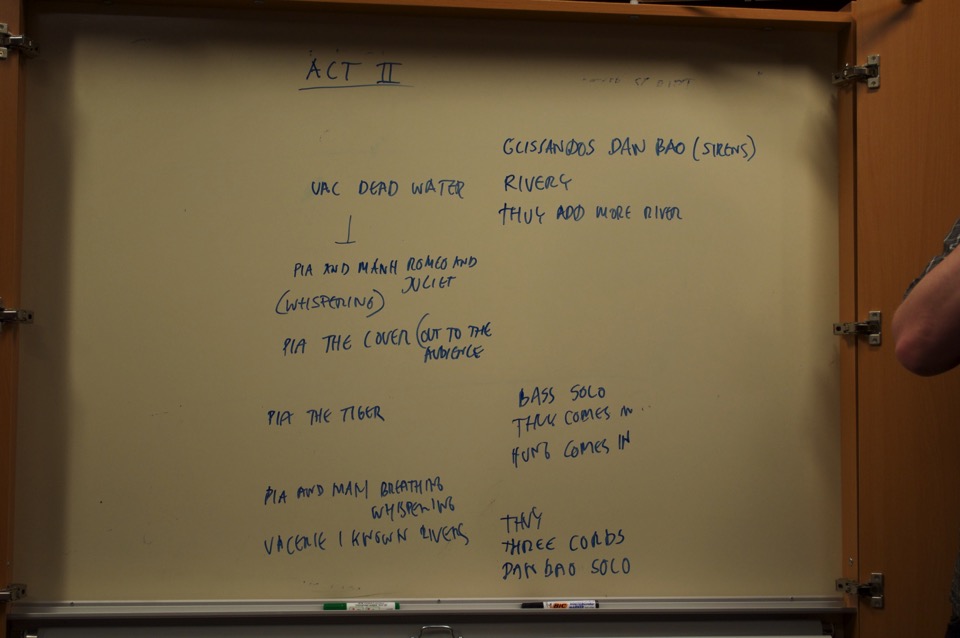 ACT II
GLISSANDOS DAN BAO (SIRENS)
VAC DEAD WATER
RIVERY
THUY ADD MORE RIVER
PIA AND MANH ROMEO AND
JULIET
(WHISPERING)
PIA THE LOVER (OUT TO THE
AUDIENCE
PIA THE TIGER
BASS SOLO
COMES IN..
HUNG COMES IN
PIA AND MANH BREATHING
WHISPERING
VALERIE I KNOWN RIVERS
THUY
THREE CORDS
DAN BAO SOLO
BIC